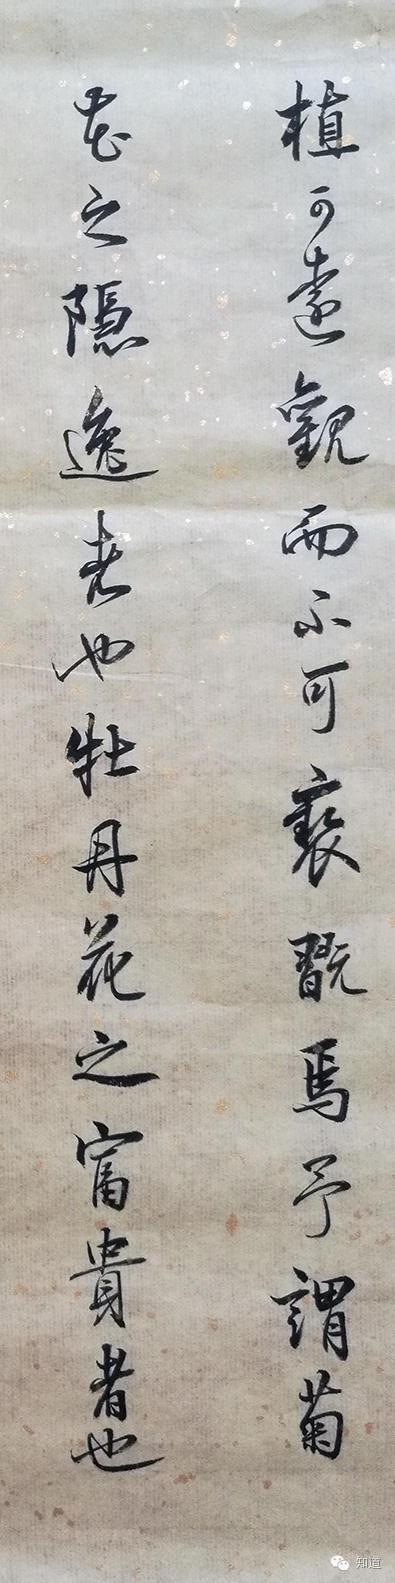 植可遠觀而不可褻翫焉予謂菊
花之隱逸者也牡丹花之富貴者也
知道